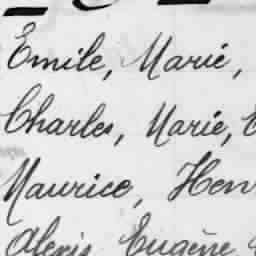 Emile, Marie,
Charles, Marie,
Maurice, Hen
Alexis Eugène